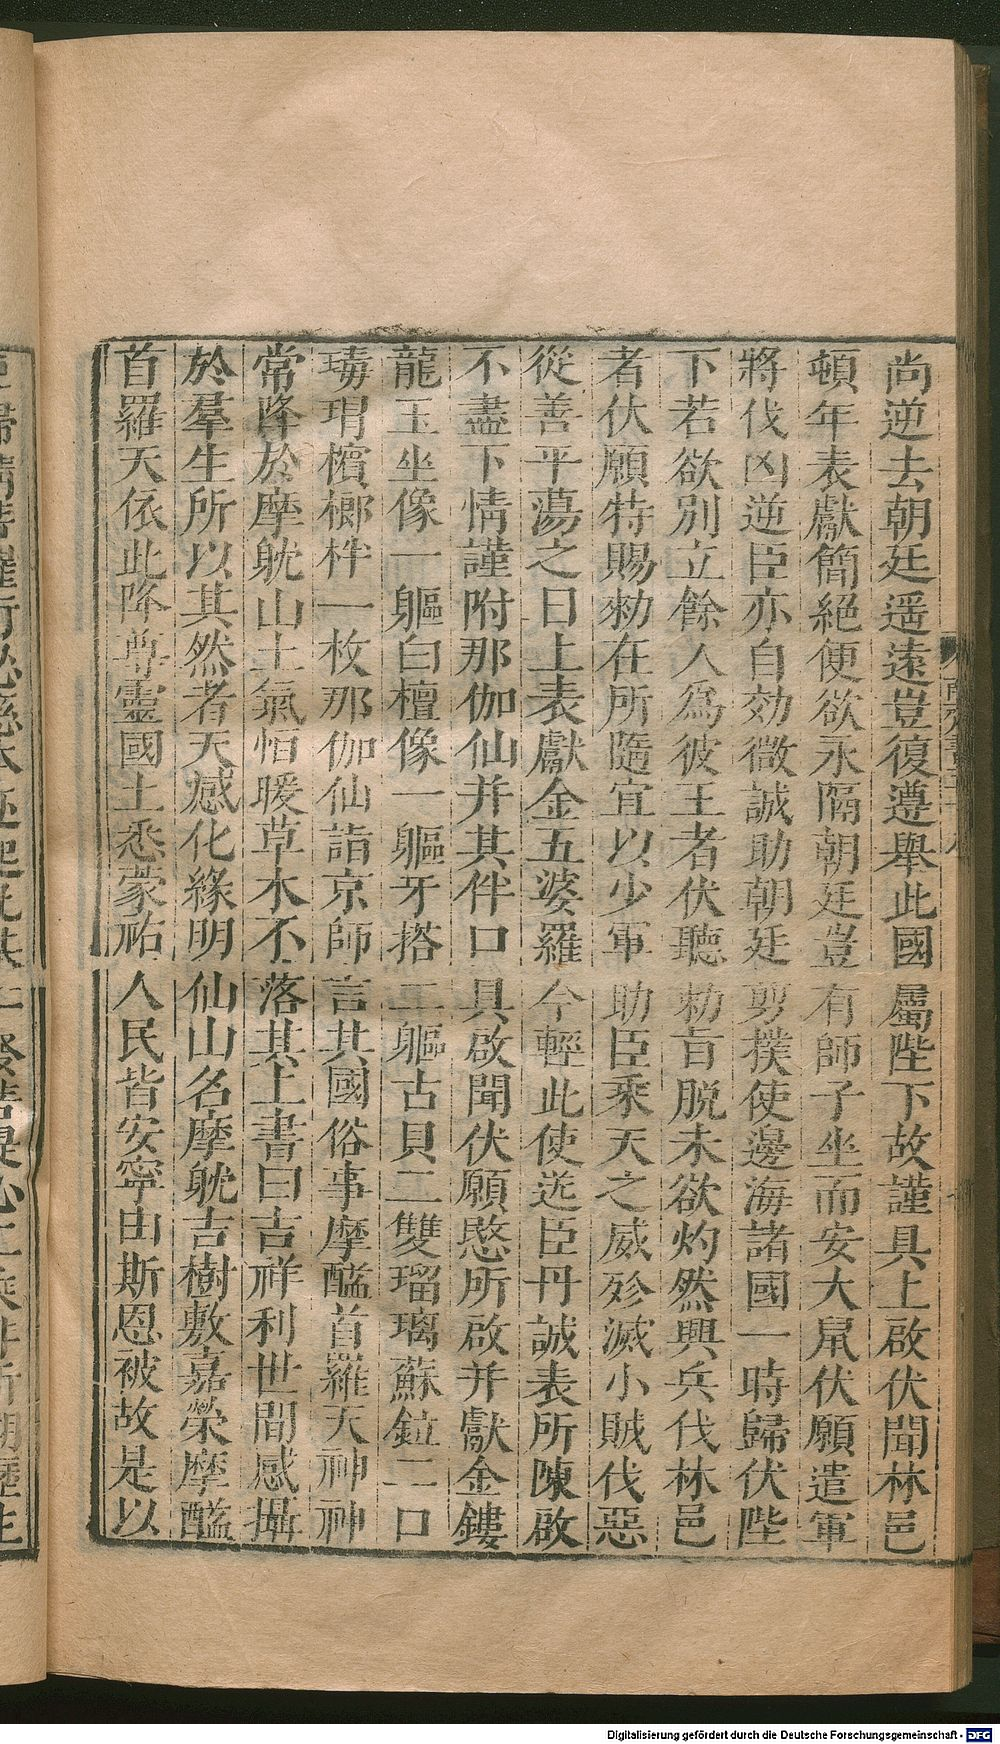 尚逆去朝廷遥遠豈復遵舉此國屬陛下故謹具上啟伏聞林邑
頓年表獻簡絕便欲永隔朝廷豈有師子坐而安大鼠伏願遣軍
將伐凶逆臣亦自効微誠助朝廷剪撲使邊海諸國一時歸伏陛
下若欲別立餘人為彼王者伏聽勑旨脱未欲灼然興兵伐林邑
者伏願特賜勑在所隨宜以少軍助臣乘天之威殄滅小賊伐惡
從善平蕩之日上表獻金五婆羅今輕此使送臣丹誠表所陳啟
不盡下情謹附那伽仙并其伴口具啟聞伏願愍所啟并獻金鏤
龍玉坐像一軀白檀像一軀牙搭二軀古貝二雙瑠璃蘇鉝二口
瑇瑁檳榔柈一枚那伽仙詣京師言其國俗事摩醯首羅天神神
常降於摩躭山土氣恒暖草木不落其上書曰吉祥利世間感攝
於羣生所以其然者天感化緣明仙山名摩躭吉樹敷嘉榮摩醯
首羅天依此降尊靈國土悉蒙祐人民皆安寧由斯恩被故是以
Digitalisierung gefördert durch die Deutsche Forschungsgemeinschaft - DFG